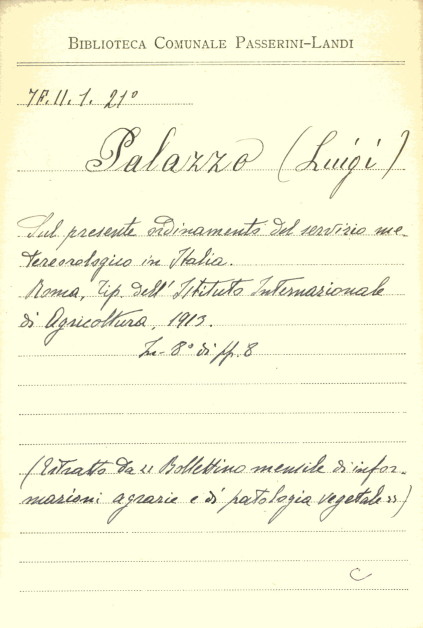 BIBLIOTECA COMUNALE PASSERINI-LANDI
7F.II.1. 21°
Palazzo (Luigi)
Sul presente ordinamento del servizio me-
tereorologico in Italia.
Roma, Tip. dell' Istituto Internazionale
di Agricoltura, 1913.
In-8° di pp. 8
(Estratto da "Bollettino mensile di infor-
mazioni agrarie e di patologia vegetale")
C